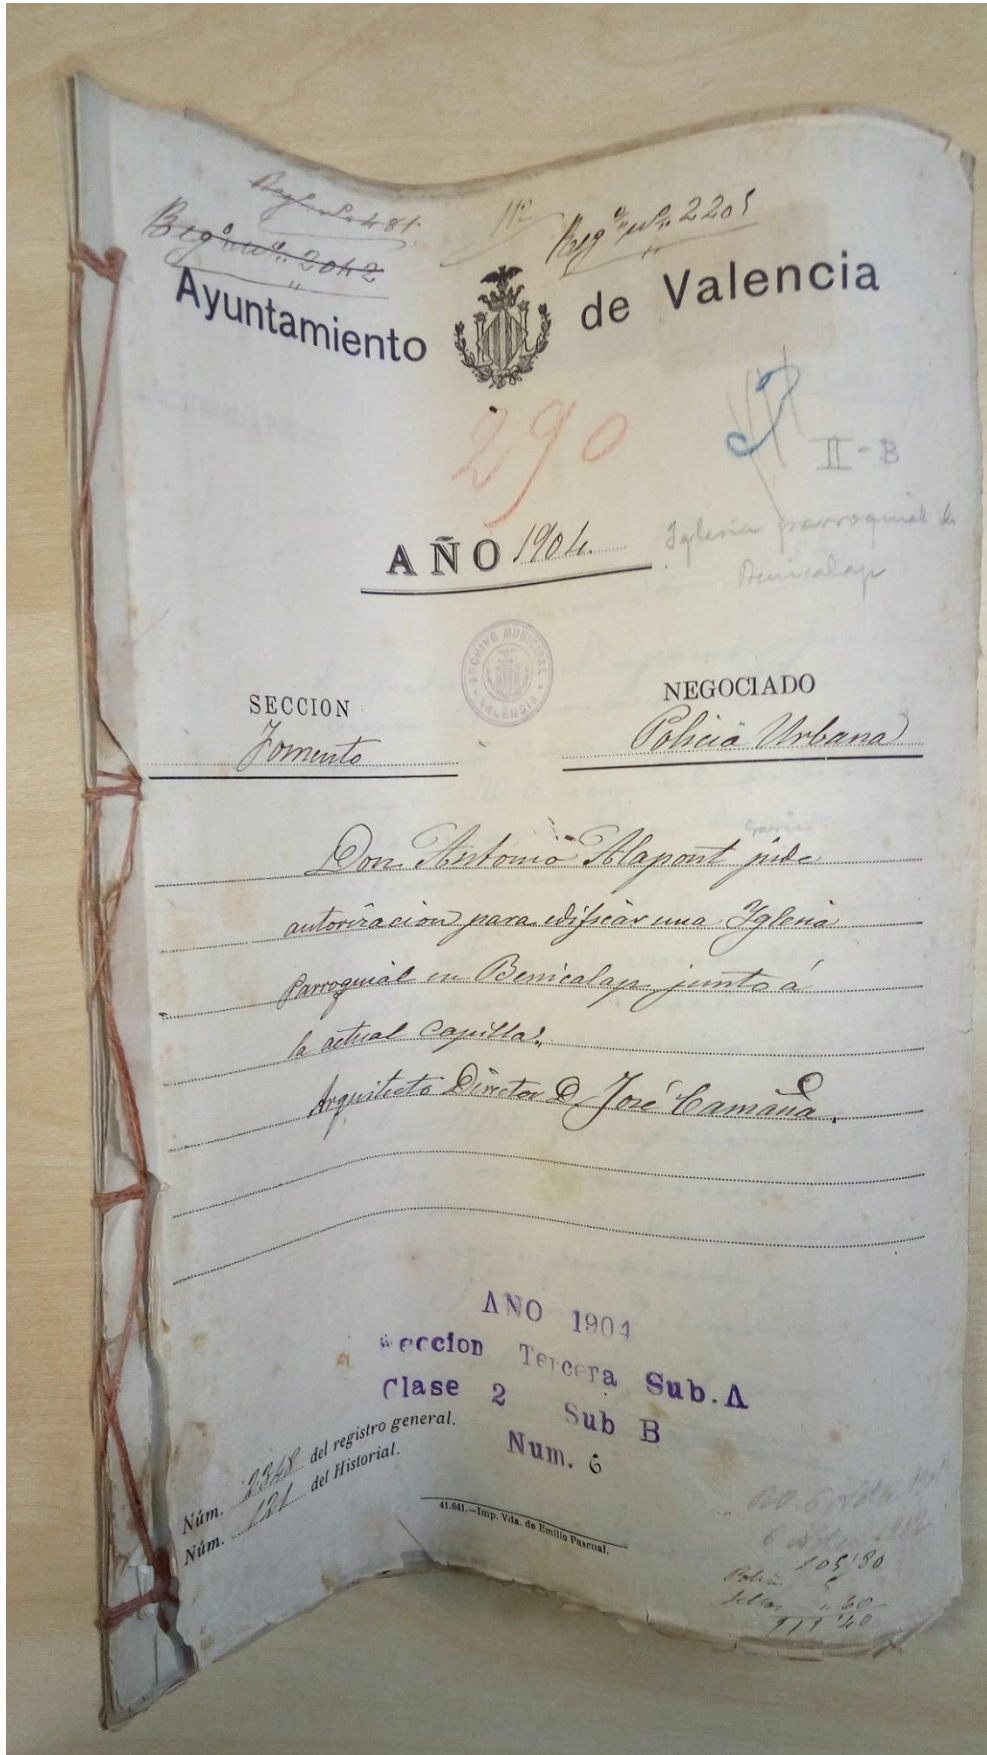 Regº nº 481
Regº nº 2042
Regº nº 2201
Ayuntamiento de Valencia
290
II-B
AÑO 1904
Iglesia parroquial de
Benicalap
ARCHIVO MUNICIPAL
VALENCIA
SECCION
Fomento
NEGOCIADO
Policia Urbana
García
Don Antonio Alapont pide
autorización para edificar una Iglesia
Parroquial en Benicalap junto á
la actual Capilla.
Arquitecto Director D. José Camaña.
AÑO 1904
Seccion Tercera Sub. A
Clase 2 Sub B
Num. 6
Núm. 2348 del registro general.
Núm. 131 del Historial.
41.641.—Imp. Vda. de Emilio Pascual.
105'80
60
111'40